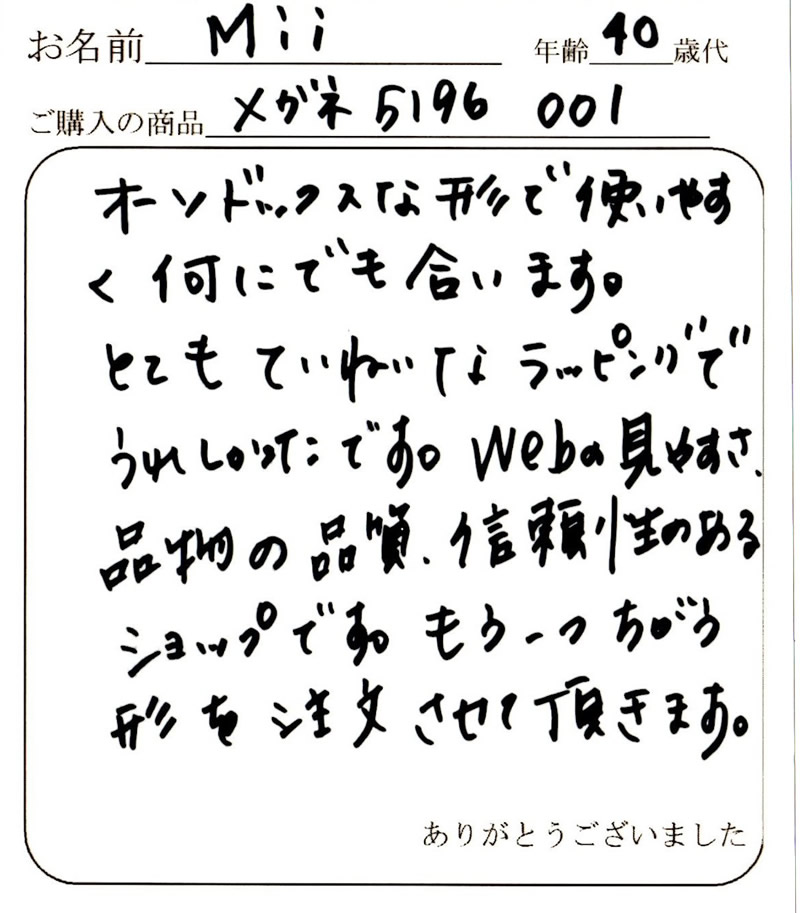 お名前 Mii 年齢 40 歳代
ご購入の商品 メガネ 5196 001
オーソドックスな形で使いやす
く何にでも合います。
とてもていねいなラッピングで
うれしかったです。Webの見やすさ、
品物の品質、信頼性のある
ショップです。もう一つちがう
形を注文させて頂きます。
ありがとうございました